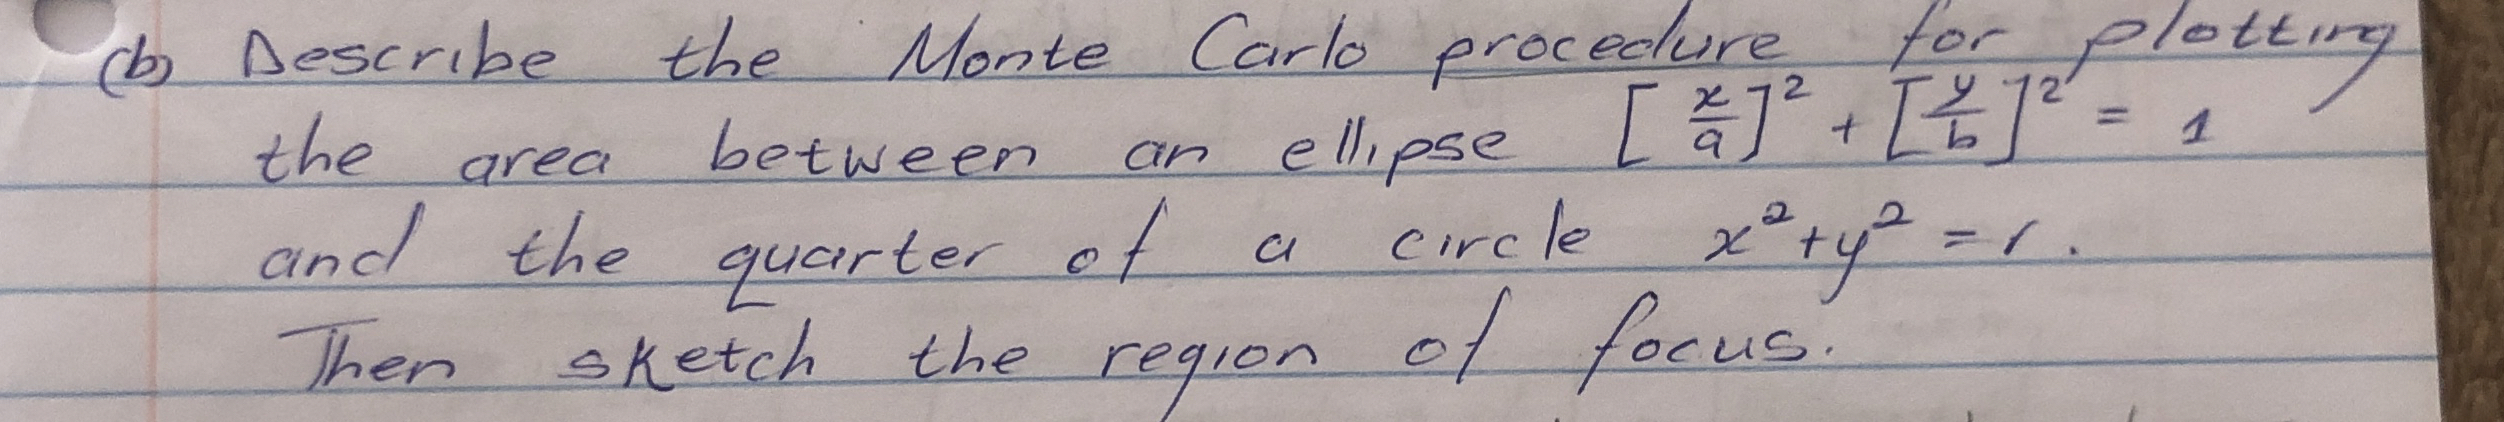 (b) Describe the Monte Carlo procedure for plotting
the area between an ellipse [x/a]² + [y/b]² = 1
and the quarter of a circle x² + y² = r.
Then sketch the region of focus.